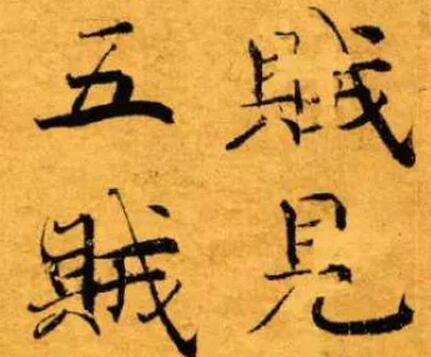 賊見
五賊